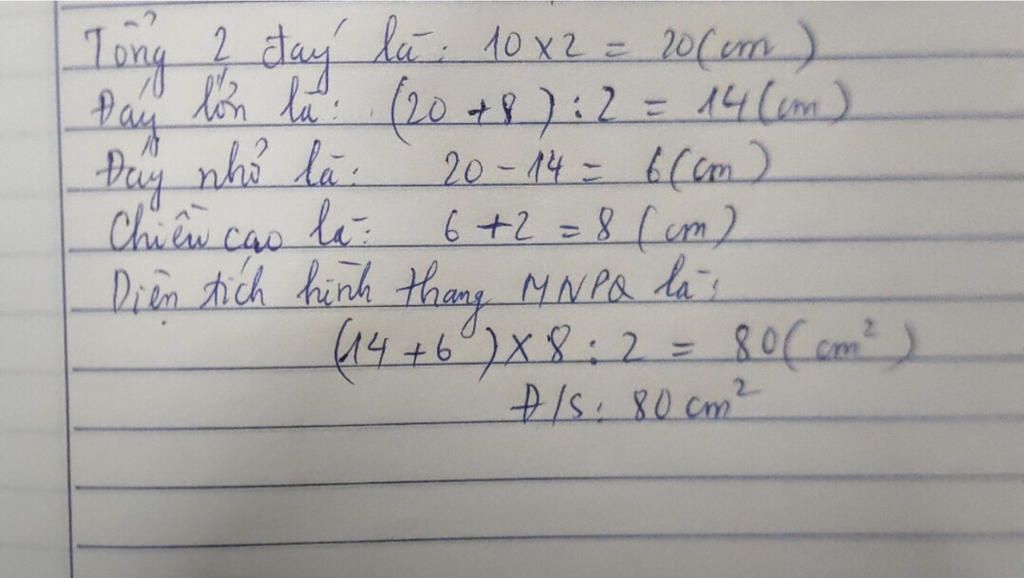 Tổng 2 đáy là: 10 x 2 = 20 (cm)
Đáy lớn là: (20 + 8) : 2 = 14 (cm)
Đáy nhỏ là: 20 - 14 = 6 (cm)
Chiều cao là: 6 + 2 = 8 (cm)
Diện tích hình thang MNPQ là:
(14 + 6) x 8 : 2 = 80 (cm²)
Đ/S: 80 cm²